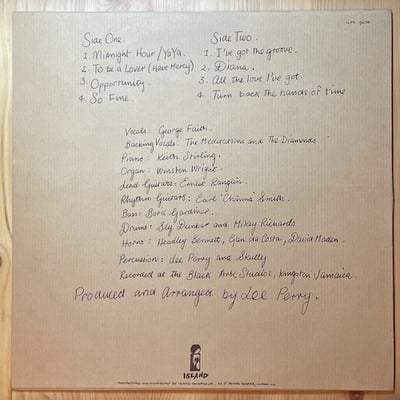 Side One.
1. Midnight Hour / YaYa.
2. To be a Lover (Have Mercy)
3. Opportunity.
4. So Fine.
Side Two.
1. I've got the groove.
2. Diana.
3. All the love I've got.
4. Turn back the hands of time
Vocals: George Faith.
Backing Vocals: The Meditations and The Diamonds
Piano: Keith Stirling.
Organ: Winston Wright.
Lead Guitars: Ernest Ranglin.
Rhythm Guitars: Earl "Chinna" Smith.
Bass: Boris Gardiner.
Drums: Sly Dunbar and Mikey Richards
Horns: Headley Bennett, Glen da Costa, David Maden.
Percussion: Lee Perry and Skully
Recorded at the Black Ark Studios, Kingston Jamaica.
Produced and Arranged by Lee Perry.
ISLAND